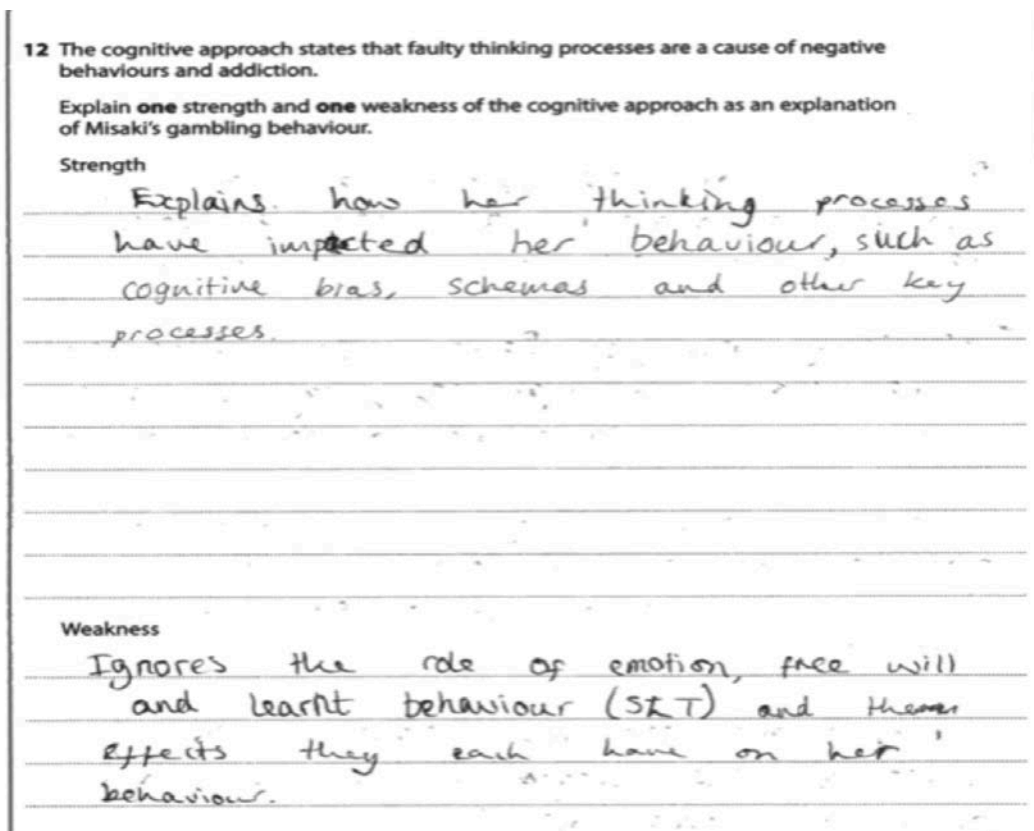 12 The cognitive approach states that faulty thinking processes are a cause of negative
behaviours and addiction.
Explain one strength and one weakness of the cognitive approach as an explanation
of Misaki's gambling behaviour.
Strength
Explains how her thinking processes
have impacted her behaviour, such as
cognitive bias, schemas and other key
processes.
Weakness
Ignores the role of emotion, free will
and learnt behaviour (SLT) and
effects they each have on her
behaviour.